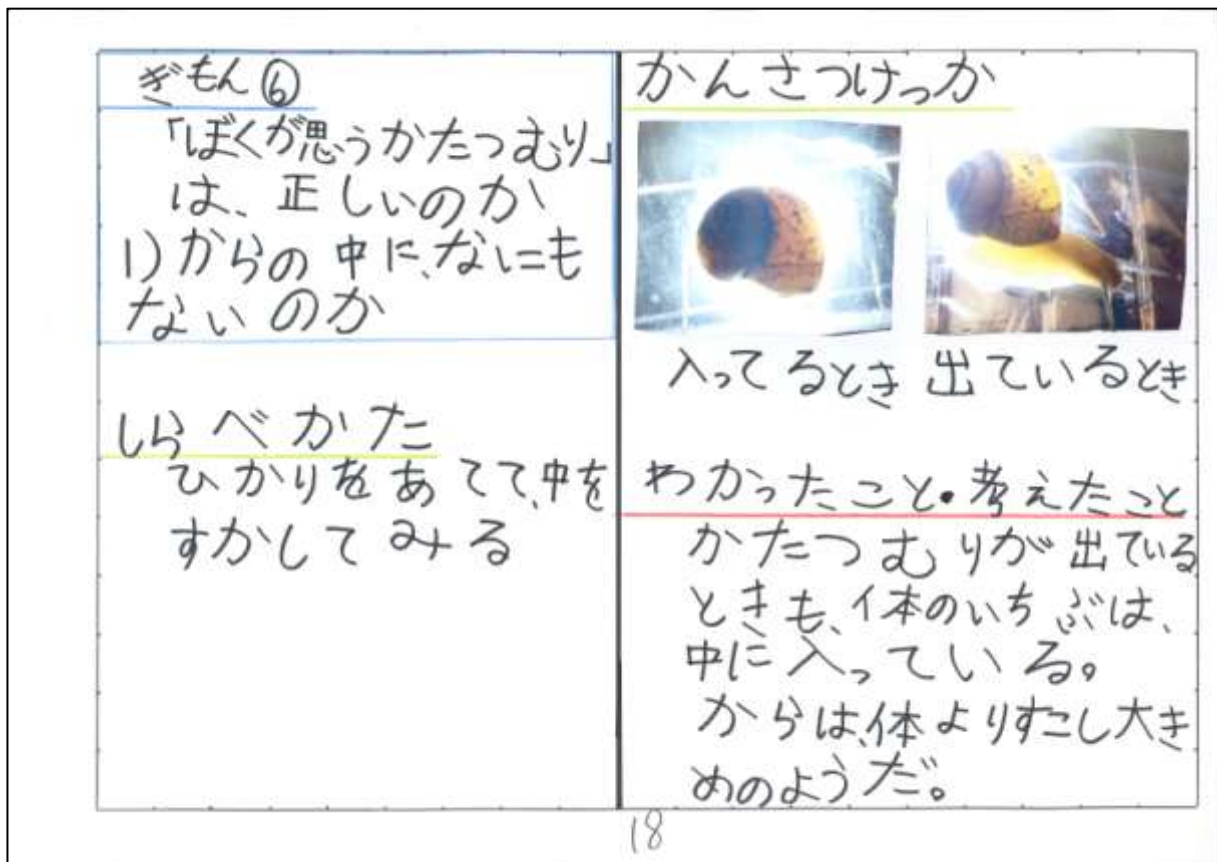 ぎもん⑥
「ぼくが思うかたつむり」
は、正しいのか
1)からの中に、なにも
ないのか
しらべかた
ひかりをあてて、中を
すかしてみる
かんさつけっか
入ってるとき 出ているとき
わかったこと・考えたこと
かたつむりが出ている
ときも、体のいちぶは、
中に入っている。
からは、体よりすこし大き
めのようだ。
18